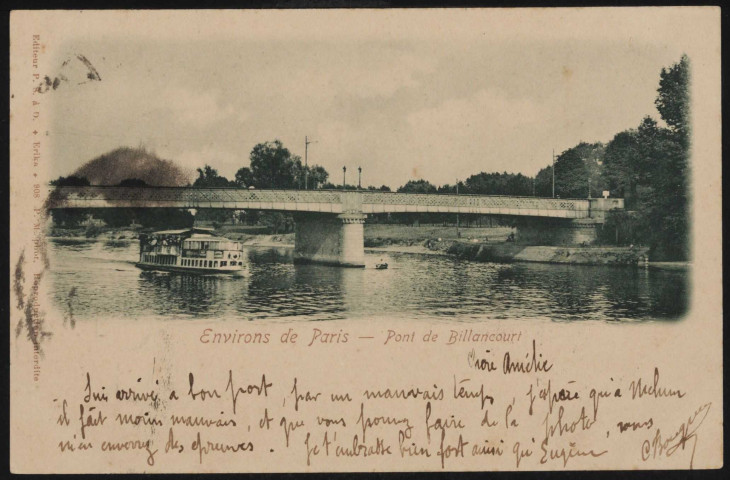 Editeur P. S. à D. ✦ Erika ✦ 908
Environs de Paris — Pont de Billancourt
Amélie
Suis arrivé à bon port, par un mauvais temps, j'espère qu'à Melun
il fait moins mauvais, et que vous pouvez faire de la photo, vous
m'en enverrez des épreuves. Je t'embrasse bien fort ainsi qu'Eugène